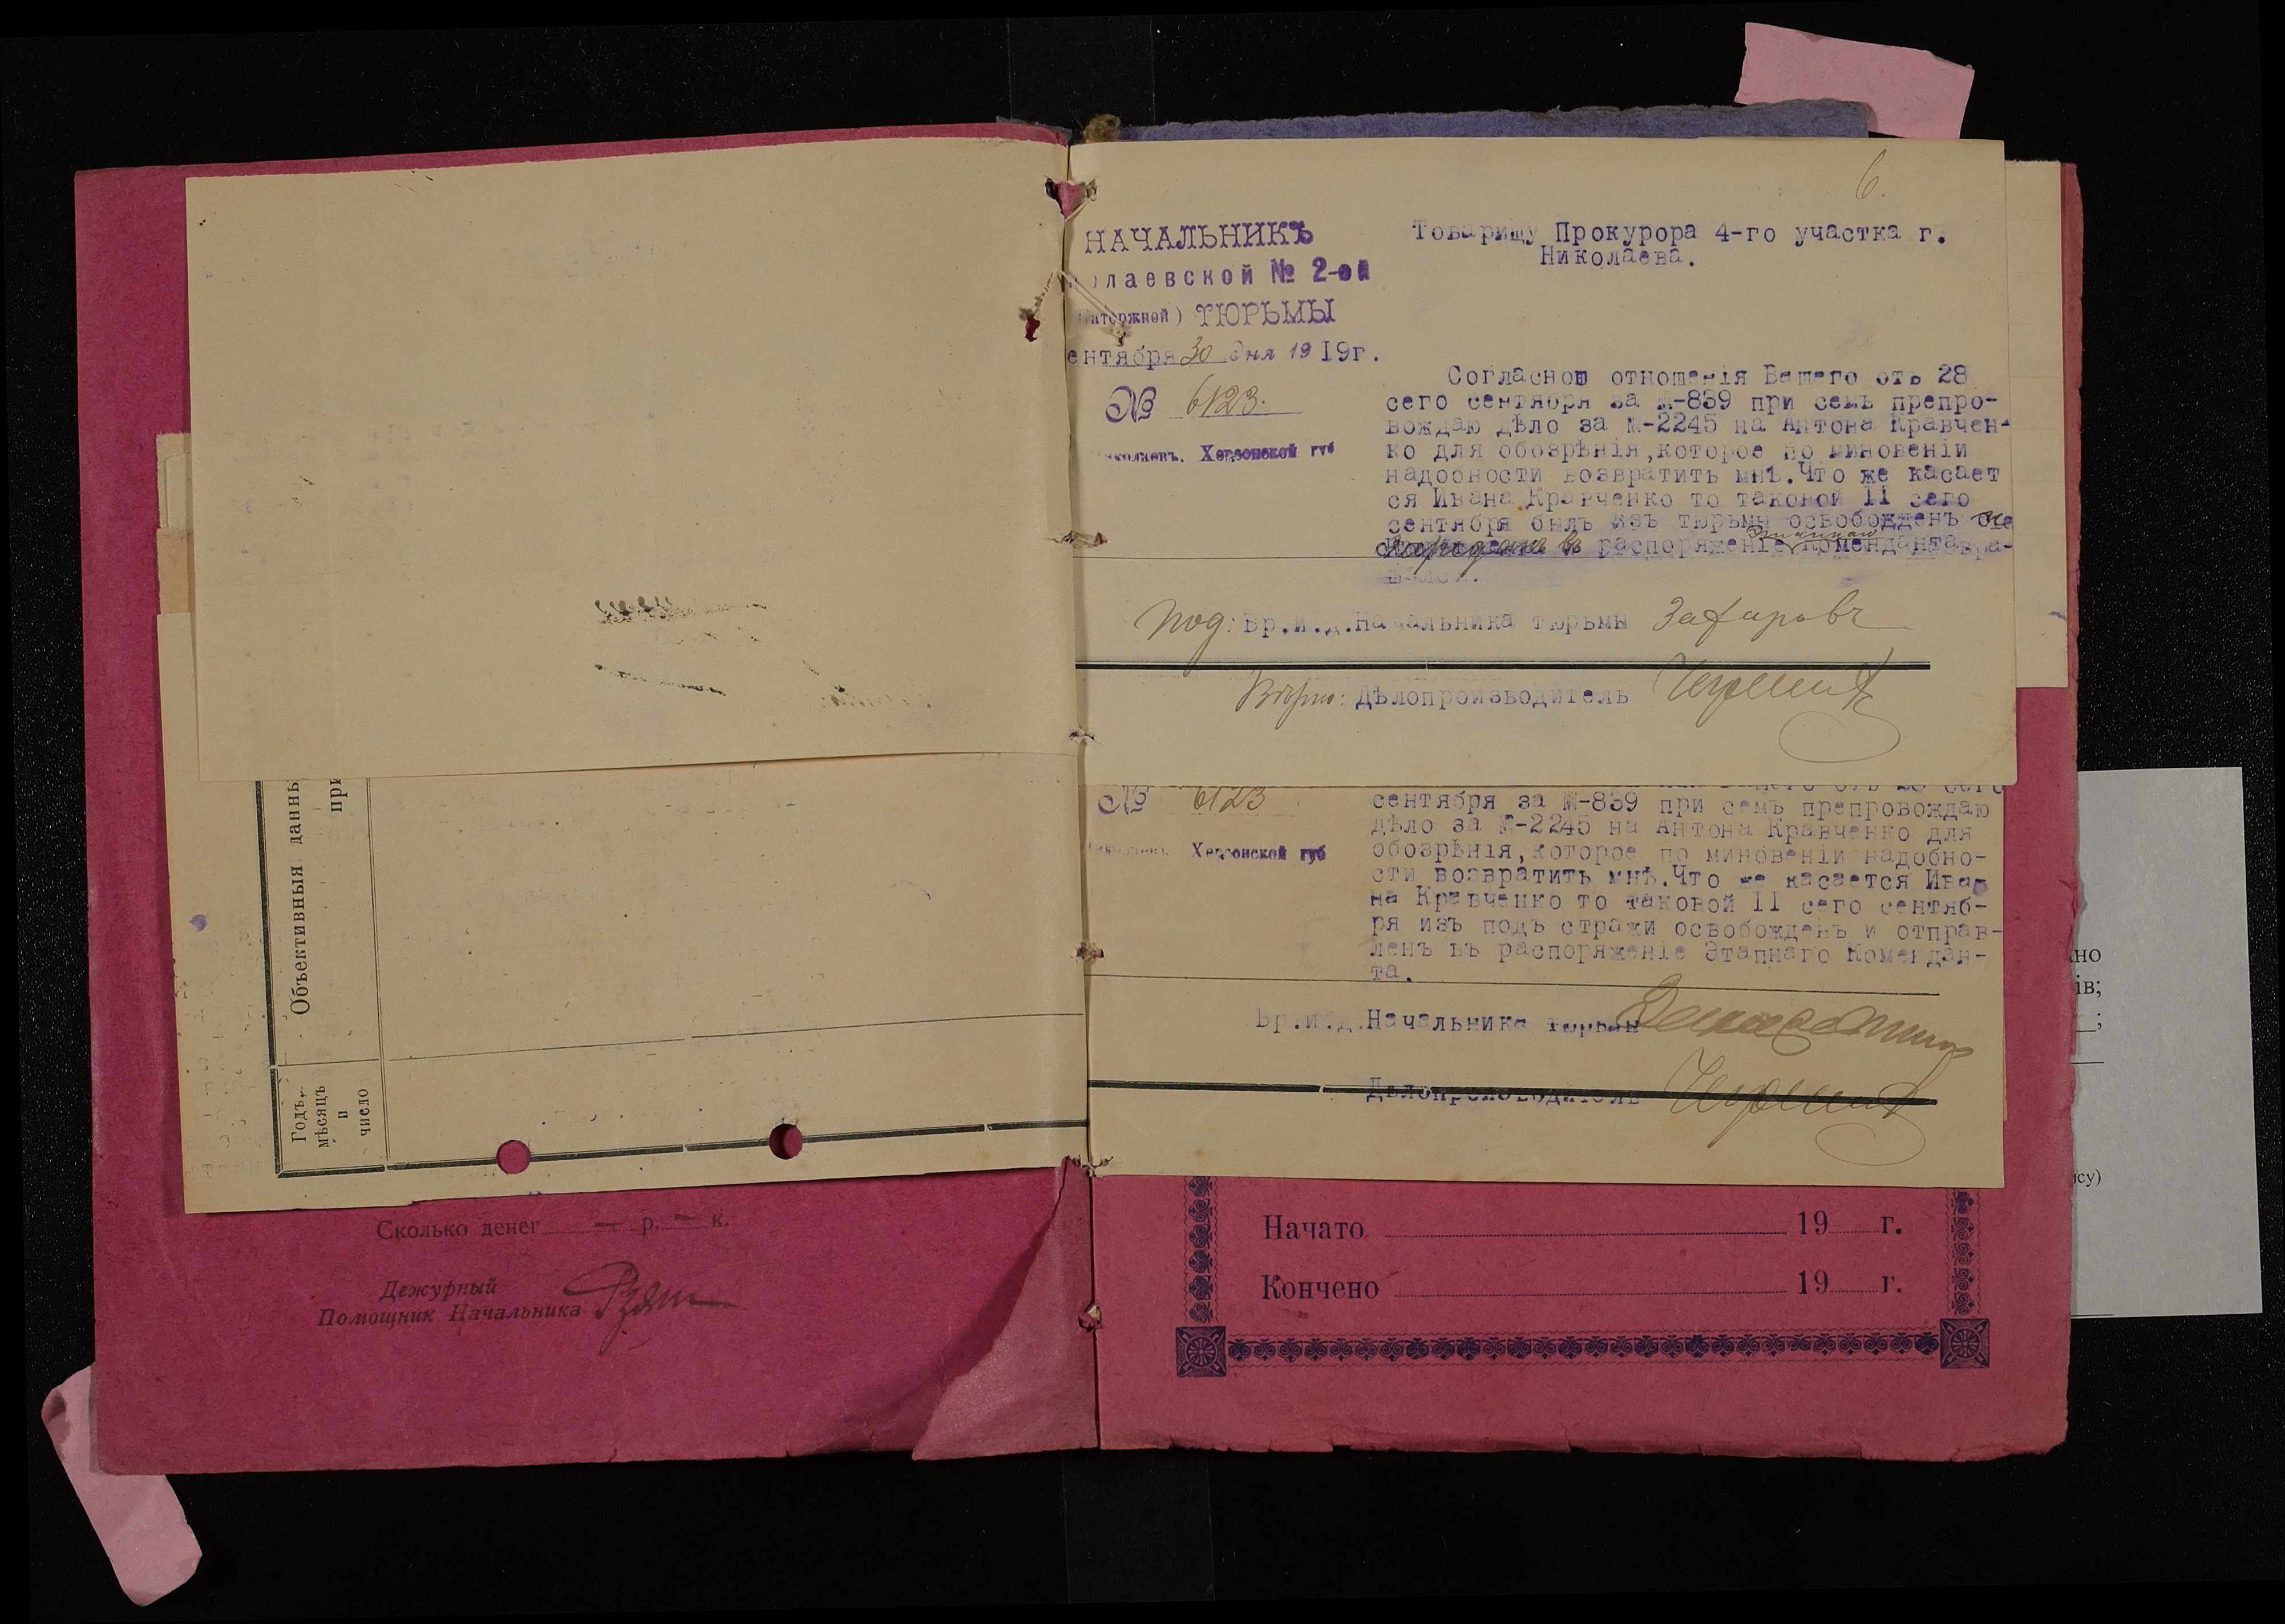 6.
НАЧАЛЬНИКЪ
олаевской № 2-ой
аторжной) ТЮРЬМЫ
ентября 30 дня 1919г.
№ 6123.
Николаевъ, Херсонской губ
Товарищу Прокурора 4-го участка г.
Николаева.
Согласною отношенія Вашего отъ 28
сего сентября за №-839 при семъ препро-
вождаю дѣло за №-2245 на Антона Кравчен-
ко для обозрѣнія,которое по миновеніи
надобности возвратить мнѣ.Что же касает
ся Ивана Кравченко то таковой 11 сего
сентября былъ изъ тюрьмы освобожденъ
въ распоряженіе коменданта
Под: Вр.и.д.Начальника тюрьмы Захаровъ
Вѣрно: Дѣлопроизводитель
№ 6123
Херсонской губ
сентября за №-839 при семъ препровождаю
дѣло за №-2245 на Антона Кравченко для
обозрѣнія,которое по миновеніи надобно-
сти возвратить мнѣ.Что же касается Ива-
на Кравченко то таковой 11 сего сентяб-
ря изъ подъ стражи освобожденъ и отправ-
ленъ въ распоряженіе Этапнаго Комендан-
та.
Вр.и.д.Начальника тюрьмы
Дѣлопроизводитель
Объективныя данны
при
Годъ,
мѣсяцъ
и
число
Сколько денег — р. — к.
Дежурный
Помощник Начальника
Начато 19 г.
Кончено 19 г.
но
ів;
;
ису)